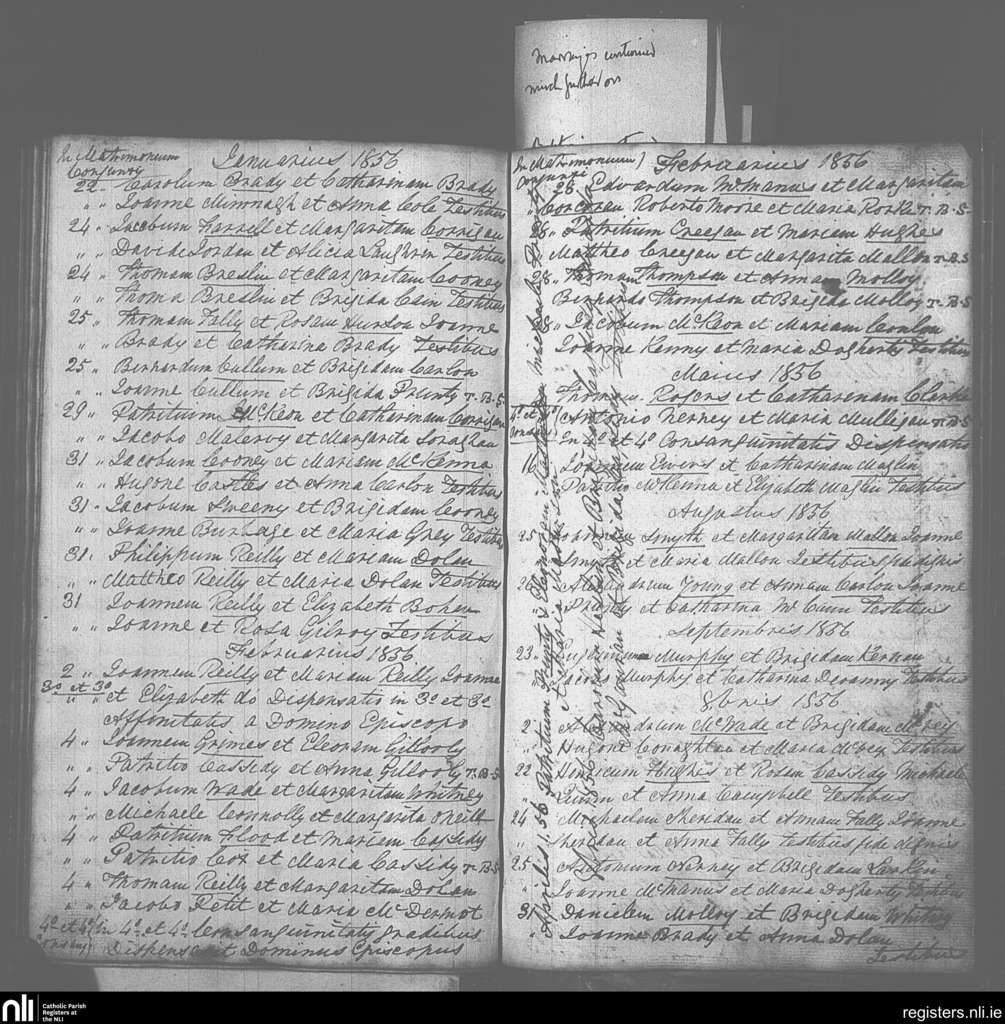 Marriages continued
much further on
In Matrimonium
Conjunxi
Januarius 1856
22 " Carolum Brady et Catharinam Brady
" " Joanne Mimnagh et Anna Cole Testibus
24 " Jacobum Farrell et Margaritam Corrigan
" " Davide Jordan et Alicia Laughrin Testibus
24 " Thomam Breslin et Margaritam Cooney
" " Thoma Breslin et Brigida Cain Testibus
25 " Thomam Fally et Rosam Hunton Joanne
" " Brady et Catharina Brady Testibus
25 " Bernardum Cullum et Brigidam Carlon
" Joanne Cullum et Brigida Prunty T-B-S
29 " Patritium McKeon et Catharinam Corrigan
" " Jacobo et Margarita
31 " Jacobum Cooney et Mariam McKenna
" " Hugone Castles et Anna Carlon Testibus
31 " Jacobum Sweeny et Brigidam Cooney
" " Joanne Burbage et Maria Grey Testibus
31 " Philippum Reilly et Mariam Dolan
" " Mattheo Reilly et Maria Dolan Testibus
31 Joannem Reilly et Elizabeth Bohan
" " Joanne et Rosa Gilroy Testibus
Februarius 1856
2 " Joannem Reilly et Mariam Reilly Joanne
3º et 3º
" " et Elizabeth do Dispensatio in 3º et 3º
Affinitatis a Domino Episcopo
4 " Joannem Grimes et Eleonam Gillooly
" " Patritio Cassidy et Anna Gillooly T-B-S
4 " Jacobum Wade et Margaritam Whitney
" " Michaele Connolly et Margarita O'Neill
4 " Patritium Flood et Mariam Cassidy
" " Patritio Cox et Maria Cassidy T-B-S
4 " Thomam Reilly et Margaritam Dolan
" " Jacobo Petit et Maria McDermot
4º et 4º in 4º et 4º Consanguinitatis gradibus
Consang Dispensavit Dominus Episcopus
In Matrimonium
Conjunxi
Februarius 1856
28 " Edvardum McManus et Margaritam
" Corcoran Roberto Moore et Maria Rorke T-B-S
28 " Patritium Creegan et Mariam Hughes
Mattheo Creegan et Margarita Mallon T-B-S
28 " Thomam Thompson et Annam Molloy
Bernardo Thompson et Brigida Molloy T-B-S
28 " Jacobum McKeon et Mariam Conlon
Joanne Kenny et Maria Dogherty Testibus
Maius 1856
Thomam Rogers et Catharinam Clarke
4º et 4º Antonio Nerney et Maria Mulligan T-B-S
Consang In 4º et 4º Consanguinitatis Dispensatis
16 Joannem Ewers et Catharinam Maglin
Patritio McKenna et Elizabeth Maglin Testibus
Augustus 1856
25 Smyth et Margaritam Mallon Joanne
et Maria Mallon Testibus fide dignis
26 Young et Annam Carlon Joanne
et Catharina Testibus
Septembris 1856
23 " Murphy et Brigidam Kernan
" Jacobo Murphy et Catharina Devanny Testibus
8bris 1856
2 McWade et Brigidam McVey
" Hugone Conaghton et Maria McVey Testibus
22 Henricum Hughes et Rosam Cassidy Michaele
" Quinn et Anna Campbell Testibus
24 " Michaelem Sheridan et Annam Fally Joanne
" Sheridan et Anna Fally Testibus fide dignis
25 Antonium Nerney et Brigidam Larkin
" Joanne McManus et Maria Dogherty Testibus
31 " Danielem Molloy et Brigidam Whitney
" Joanne Brady et Anna Dolan
Testibus
Aprilis 1856 Patritium Prunty et
nli
Catholic Parish
Registers at
the NLI
registers.nli.ie